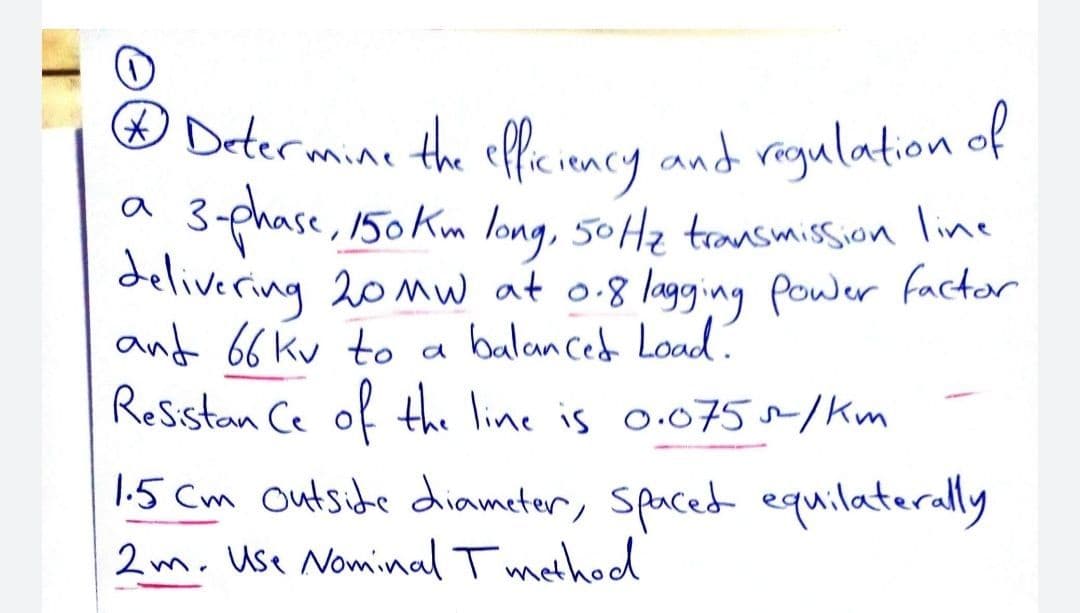 ①
* Determine the efficiency and regulation of
a 3-phase, 150 Km long, 50 Hz transmission line
delivering 20 MW at 0.8 lagging power factor
and 66 Kv to a balanced Load.
Resistance of the line is 0.075 Ω/Km
1.5 Cm outside diameter, spaced equilaterally
2m. Use Nominal T method